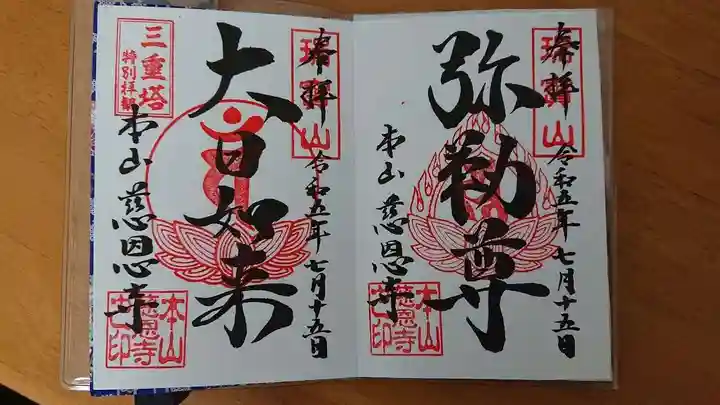 奉拝
瑞寳山
令和五年七月十五日
弥勒尊
本山慈恩寺
本山
慈恩寺
之印
奉拝
瑞寳山
令和五年七月十五日
大日如来
三重塔
特別拝観
本山慈恩寺
本山
慈恩寺
之印